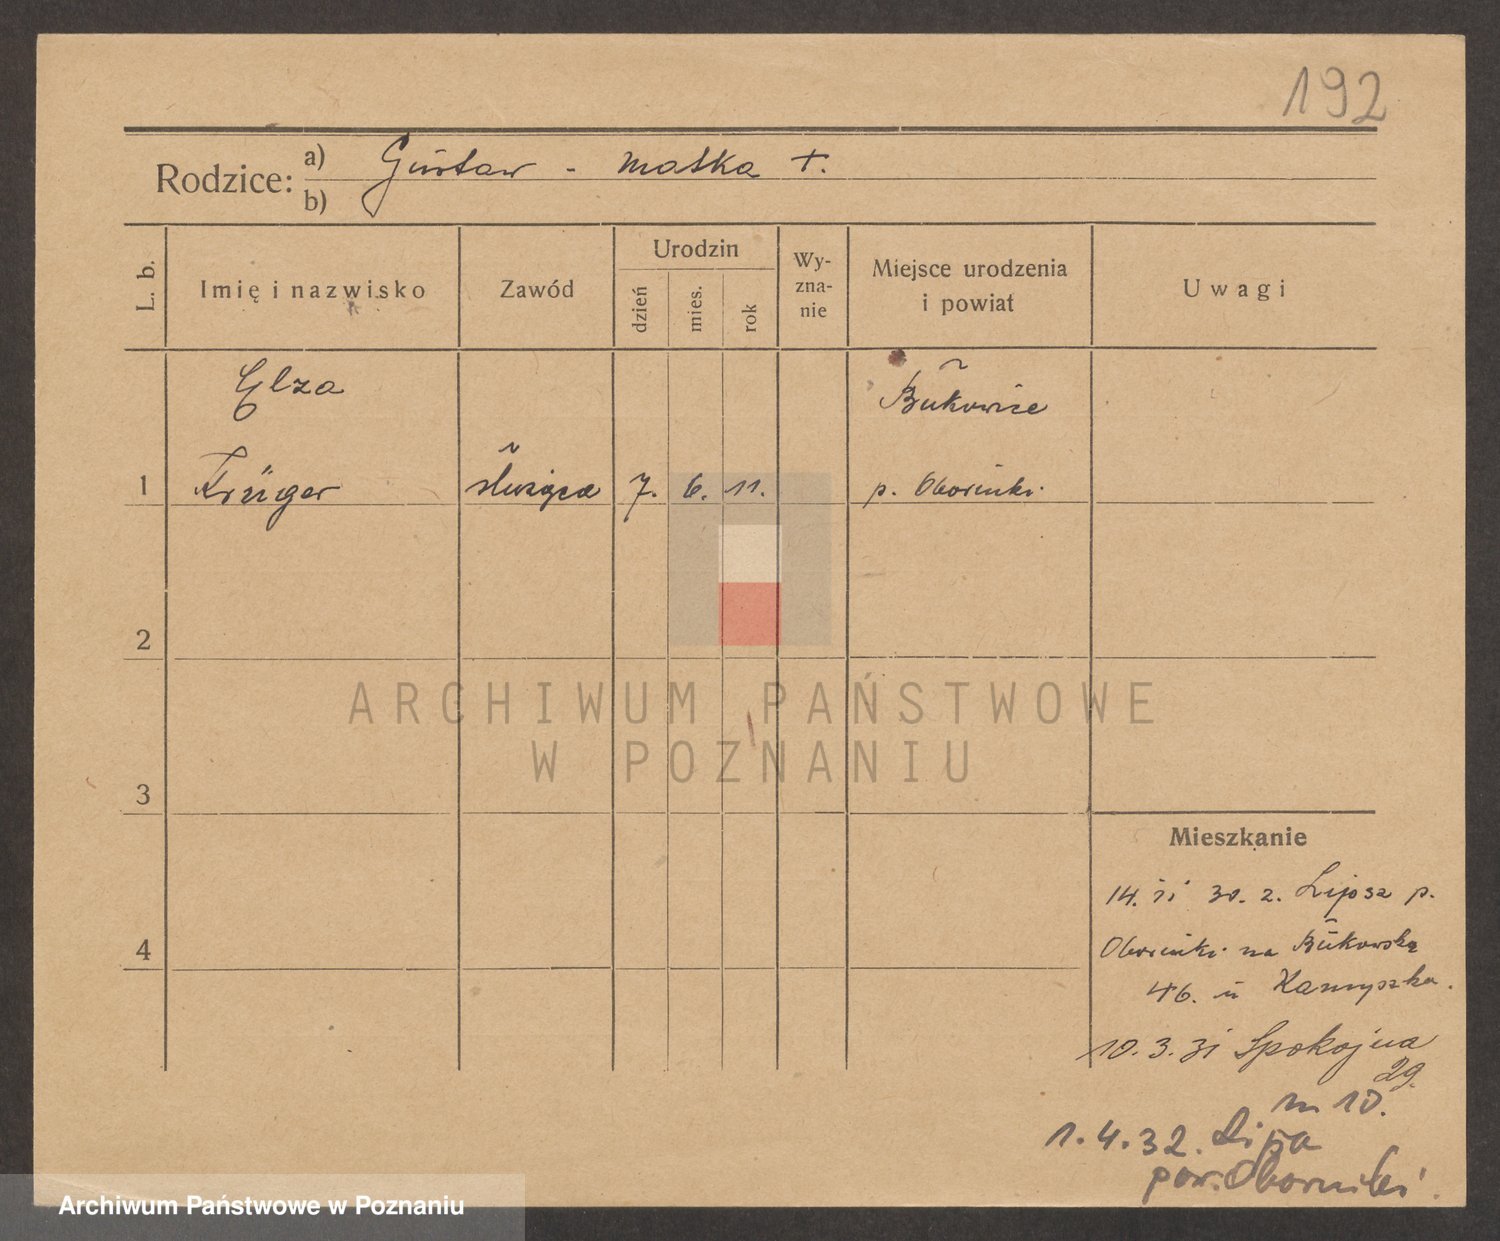 192
Rodzice: a) Gustaw - matka +.
b)
L. b.
Imię i nazwisko
Zawód
Urodzin
dzień
mies.
rok
Wy-
zna-
nie
Miejsce urodzenia
i powiat
Uwagi
Elza
Bukowice
1 Krüger służąca 7. 6. 11. p. Oborniki.
2
3
4
ARCHIWUM PAŃSTWOWE
W POZNANIU
Mieszkanie
14. 30. z. p.
Oborniki na Bukowską
46. u
10. 3. 31 Spokojna
29.
m 10.
1. 4. 32. Lipa
pow. Oborniki.
Archiwum Państwowe w Poznaniu